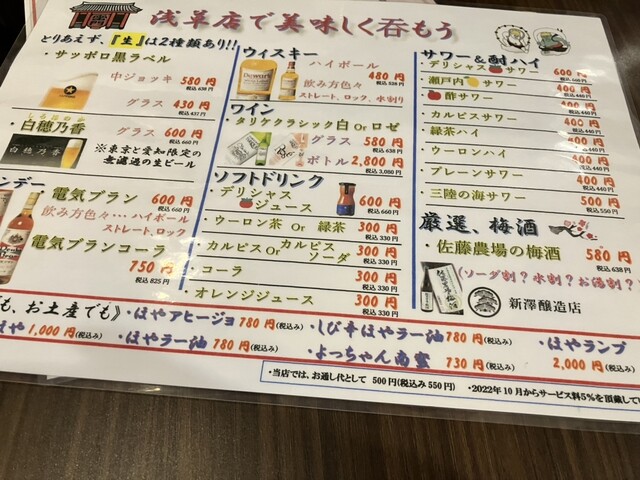 浅草店で美味しく呑もう
とりあえず、『生』は2種類あり!!
・サッポロ黒ラベル
中ジョッキ 580円
税込638円
グラス 430円
税込437円
しろほのか
・白穂乃香
グラス 600円
税込660円
白穂乃香
※東京と愛知限定の
無濾過の生ビール
ンデー
電気ブラン 600円
税込660円
飲み方色々・・・ハイボール
ストレート、ロック
電気ブランコーラ
750円
税込825円
ウィスキー
ハイボール
480円
税込528円
飲み方色々
ストレート、ロック、水割り
ワイン
・タリケクラシック白 Or ロゼ
グラス 580円
税込638円
ボトル 2,800円
税込3,080円
ソフトドリンク
・デリシャス
ジュース 600円
税込660円
・ウーロン茶 Or 緑茶 300円
税込330円
・カルピス Or カルピスソーダ 300円
税込330円
・コーラ 300円
税込330円
・オレンジジュース 300円
税込330円
サワー&酎ハイ
・デリシャス サワー 600円
税込660円
・瀬戸内 サワー 400円
税込440円
・ 酢サワー 400円
税込440円
・カルピスサワー 400円
税込440円
・緑茶ハイ 400円
税込440円
・ウーロンハイ 400円
税込440円
・プレーンサワー 400円
税込440円
・三陸の海サワー 500円
税込550円
厳選、梅酒
・佐藤農場の梅酒 580円
税込638円
(ソーダ割?水割?お湯割?)
新澤醸造店
も、お土産でも》
ほや 1,000円(税込み)
・ほやアヒージョ 780円(税込み)
・ほやラー油 780円(税込み)
・しび辛ほやラー油 780円(税込み)
・よっちゃん南蛮 730円(税込み)
・ほやランプ
2,000円(税込み)
・当店では、お通し代として 500円(税込み550円) ・2022年10月からサービス料5%を頂戴してい